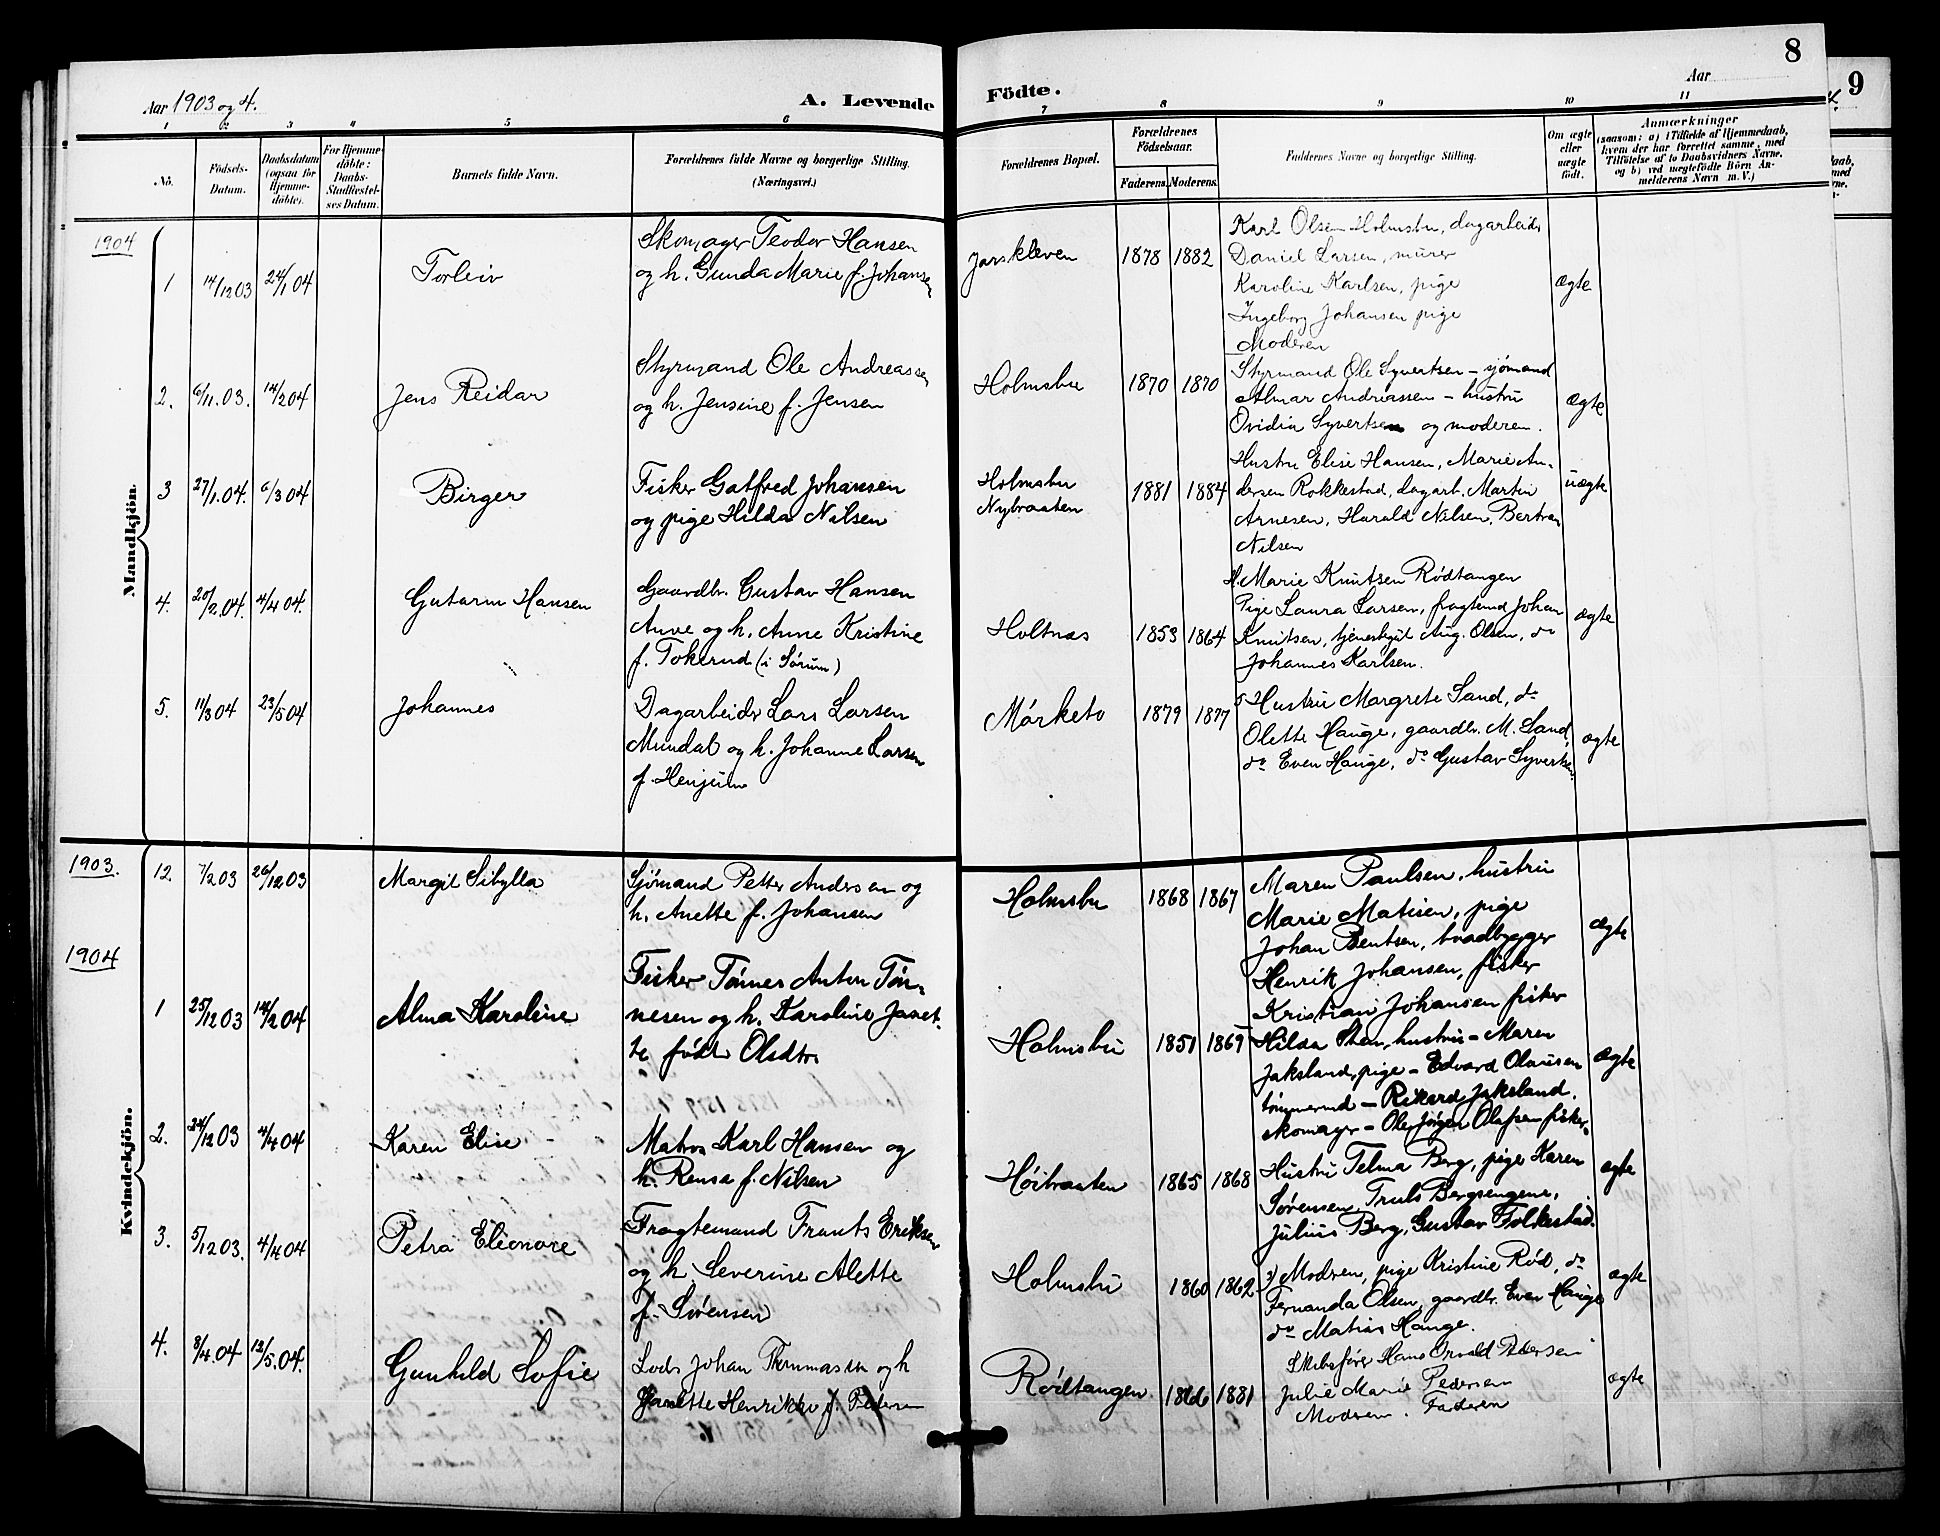 8
9
Aar 1903 og 4.
A. Levende Födte.
Aar
1 2 3 4 5 6 7 8 9 10 11
No.
Födsels-
Datum.
Daabsdatum
(ogsaa for
Hjemme-
døbte).
For Hjemme-
döbte:
Daabs-
Stadfæstel-
ses Datum.
Barnets fulde Navn.
Forældrenes fulde Navne og borgerlige Stilling.
(Næringsvei.)
Forældrenes Bopæl.
Forældrenes
Födselsaar.
Faderens. Moderens.
Faddernes Navne og borgerlige Stilling.
Om ægte
eller
uægte
født.
Anmærkninger
(saasom: a) i Tilfælde af Hjemmedaab,
hvem der har forrettet samme, med
Tilföielse af to Daabsvidners Navne.
og b) ved uægtefödte Börn An-
melderens Navn m. V.)
Mandkjön.
1904
1 14/12 03 24/1 04 Torleiv
Skomager Teodor Hansen
og h. Gunda Marie f. Johansen
Jarskleven 1878 1882
Karl Olsen Holmsbu, dagarbeider
Daniel Larsen, murer
Karoline Karlsen, pige
Ingeborg Johansen pige
Moderen
ægte
2. 6/11.03. 14/2 04 Jens Reidar
Styrmand Ole Andreassen
og h. Jensine f. Jensen
Holmsbu 1870 1870
Styrmand Ole Syvertsen – sjømand
Almar Andreassen – hustru
Ovidia Syvertsen og moderen.
ægte
3 27/1.04. 6/3 04 Birger
Fisker Gotfred Johansen
og pige Hilda Nilsen
Holmsbu
Nybraaten 1881 1884
Hustru Elise Hansen, Marie An-
dersen Rokkestad, dagarb. Martin
Arnesen, Harald Nilsen, Bertran
Nilsen
uægte
4. 20/2.04. 4/4 04. Gutorm Hansen
Gaardbr. Gustav Hansen
Auve og h. Anne Kristine
f. Tokerud (i Sørum)
Holtnæs 1853 1864
H. Marie Knutsen Rødtangen
Pige Laura Larsen, fragtemd Johan
Knutsen, tjenestgut Aug. Olsen, do
Johannes Karlsen.
ægte
5. 11/3 04 23/5 04 Johannes
Dagarbeider Lars Larsen
Mundal og h. Johanne Larsen
f. Henjum
Mørketo 1879 1877
Hustru Margrete Sand, do
Olette Hauge, gaardbr. M. Sand,
do Even Hauge, do Gustav Syvertsen
ægte
Kvindekjön.
1903.
12. 7/2 03 26/12 03 Margit Sibylla
Sjømand Petter Andersen og
h. Anette f. Johansen
Holmsbu 1868 1867
Maren Paulsen, hustru
Marie Matisen, pige
Johan Bentsen, braadbygger
Henrik Johansen, fisker
Kristian Johansen fisker
ægte
1904
1 25/12 03 14/2 04 Alma Karoline
Fisker Tønnes Anton Tøn-
nesen og h. Karoline Janet-
te født Olsdtr
Holmsbu 1851 1865
Hilda Sten, hustru – Maren
Jaksland, pige – Edvard Olausen
tømmermd – Rikard Jaksland.
skomager – Ole Jørgen Olafsen fisker.
ægte
2. 24/12 03 4/4 04 Karen Elise
Matros Karl Hansen og
h. Rensa f. Nilsen
Høibraaten 1865 1868
Hustru Telma Berg, pige Karen
Sørensen, Truls Bergsengene,
Julius Berg, Gustav Folkestad.
ægte
3. 5/12 03. 4/4 04 Petra Eleonore
Fragtemand Frants Eriksen
og h. Severine Alette
f. Sørensen
Holmsbu 1860 1862
Modren, pige Kristine Rød, do
Fernanda Olsen, gaardbr. Even Hauge
do Matias Hauge.
ægte
4. 8/4.04 13/5.04. Gunhild Sofie
Lods Johan Thommasen og h
Janette Henrikke f. Pedersen
Rødtangen. 1866 1881
Skibsfører Hans Osvald Pedersen
Julie Marie Pedersen
Modren. Faderen
ægte